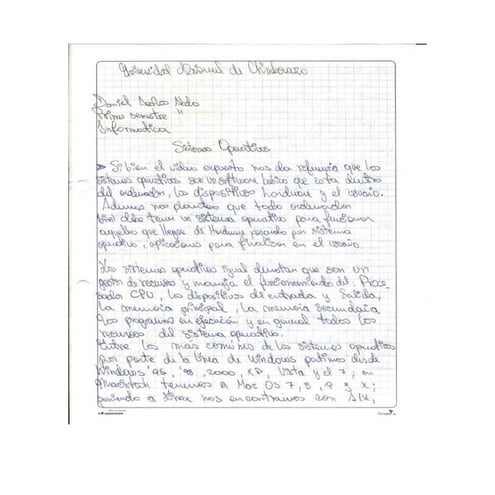 Universidad Nacional de Chimborazo
Daniel
Primo semestre "
Informatica
Sistemas Operativos
Si bien el video expuesto nos da refencia que los
sistemas operativos son un software básico que esta dentro
del ordenador, los dispositivos hardware y el usuario.
Ademas nos plantea que todo ordenador
debe tener un sistema operativo para funcionar
aquello que llegar de Hardware pasando por sistema
operativo, aplicaciones para finalizar en el usuario.
Los sistemas operativos igual denotan que son un
gestor de recursos y maneja el funcionamiento del Proce
sador CPU, los dispositivos de entrada y salida,
la memoria principal, la memoria secundaria
los programas en ejecución y en general todos los
recursos del sistema operativo.
Entre los mas comunes de los sistemas operativos
por parte de la línea de windows partimos desde
Windows '95, '98, 2000, XP, Vista y el 7; en
Macintosh tenemos a Mac OS 7, 8, 9 y x;
a Linux nos encontramos con